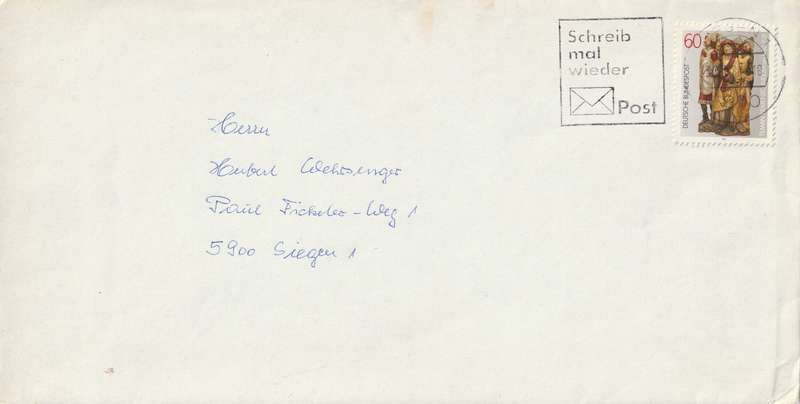 Schreib
mal
wieder
Post
60
DEUTSCHE BUNDESPOST
Herrn
Herbert
Paul Fickeler-Weg 1
5900 Siegen 1